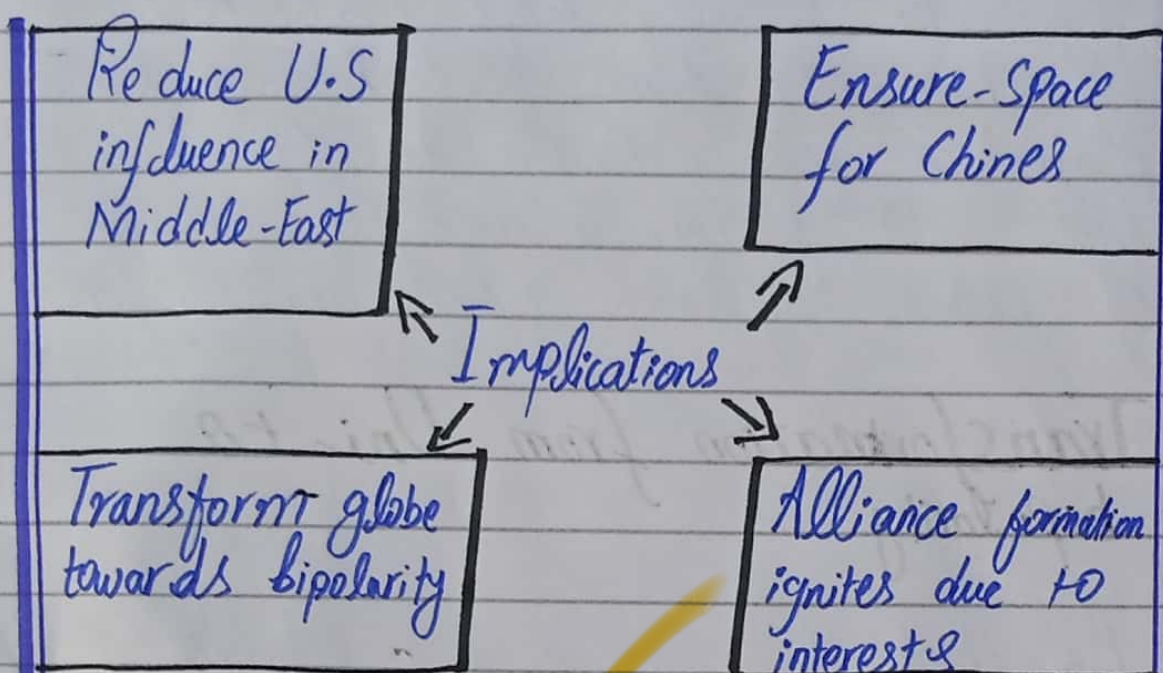 Reduce U.S
influence in
Middle-East
Ensure-Space
for Chines
Implications
Transform globe
towards bipolarity
Alliance formation
ignites due to
interests